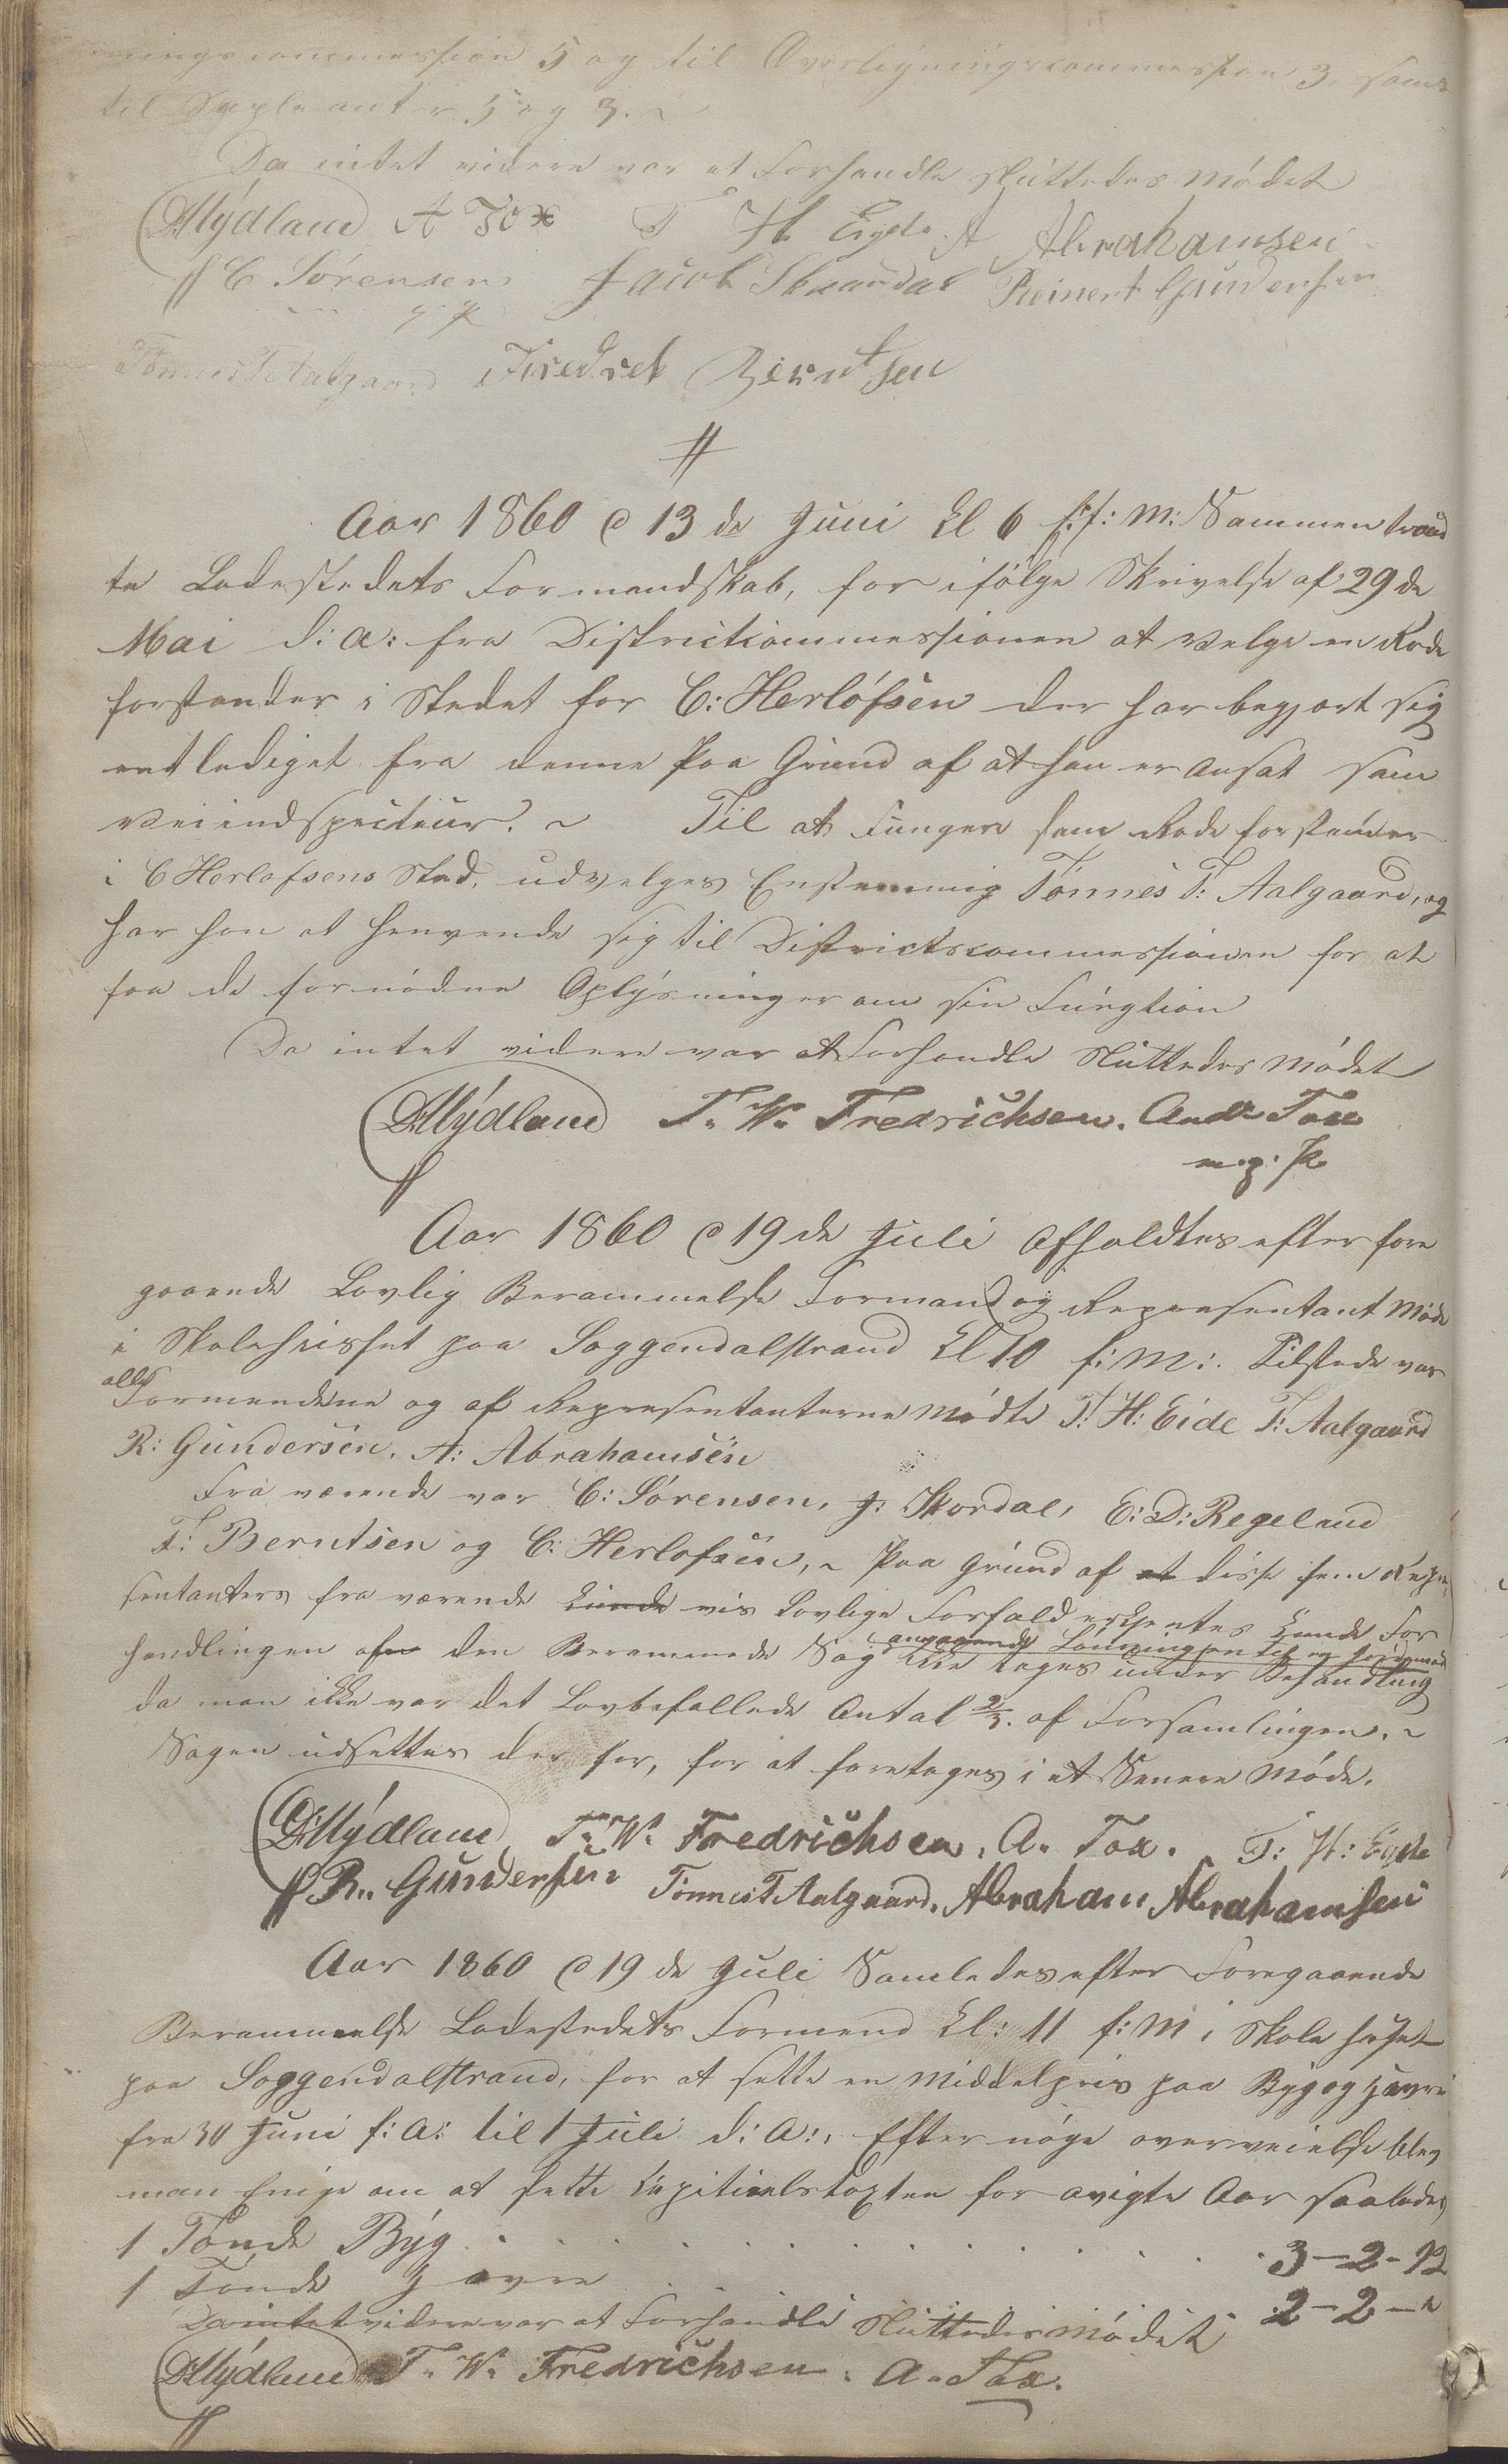 ningscommession 5 og til Overligningscommession 3, samt
til Supleanter 5 og 3. ~
Da intet videre var at Forhandle sluttedes Mødet
DMydland A Tox T H Eyde A Abrahamsen
C Sørensen Jacob Skaardal Reinert Gundersen
Tønnes T Aalgaard Fredrek Berntsen
Aar 1860 d 13de Juni Kl 6 f:f: M: Sammentraad
te Ladestedets Formandskab, for ifølge Skrivelse af 29de
Mai d: a: fra Districtcommessionen at velge en Rode
forstander i Stedet for C: Herlofsen der har begjært sig
entlediget fra denne Paa Grund af at han er Ansat som
Veiindspecteur. ~ Til at Fungere som Rodeforstander
i C Herlofsens Sted, udvelges Enstemmig Tønnes T: Aalgaard, og
har han at Henvende sig til Districtscommessionen for at
faa de fornødne Oplysninger om sin Fungtion
Da intet videre var at Forhandle Sluttedes Mødet
DMydland T. W. Fredrichsen. Andr Tox
m. p. P.
Aar 1860 d 19de Juli Afholdtes efter fore
gaaende Lovlig Berammelse Formand og Representant Møde
i Skolehusset paa Soggendalstrand Kl 10 f: M:. Tilstede var
alle
Formendene og af Representanterne Mødte T: H: Eide T: Aalgaard
R: Gundersen, A: Abrahamsen
Fra værende var C: Sørensen, J: Skordal, E: D: Regeland
F: Berntsen og C: Herlofsen, ~ Paa Grund af at disse fem Repre
sentanters fra værende kunde vis Lovlige Forfald erkjentes kunde For
angaaende Lønningen til en Jordmod
handlingen af den Berammede Sag ikke tages under Behandling
da man ikke var det Lovbefallede Antal 2/3. af Forsamlingen. ~
Sagen udsettes der for, for at foretages i et Senere Møde.
DMydland T. W. Fredrichsen. A. Tox. T: H: Eyde
R. Gundersen Tønnes T Aalgaard, Abraham Abrahamsen
Aar 1860 d 19de Juli Samledes efter Foregaaende
Berammelse Ladestedets Formend Kl: 11 f: M i Skole huset
paa Soggendalstrand, for at sette en Middelpris paa Byg og Havre
fra 30 Juni f: a: til 1 Juli d: a:, Efter nøge overveielse blev
man Enige om at sette Kapitielstaxten for avigte Aar saaledes
1 Tønde Byg . . . . . . . . . . . . 3-2-12
1 Tønde Havre . . . . . . . . . 2-2-"
Da intet videre var at Forhandle Sluttedes Mødet
DMydland T. W. Fredrichsen. A. Tox.